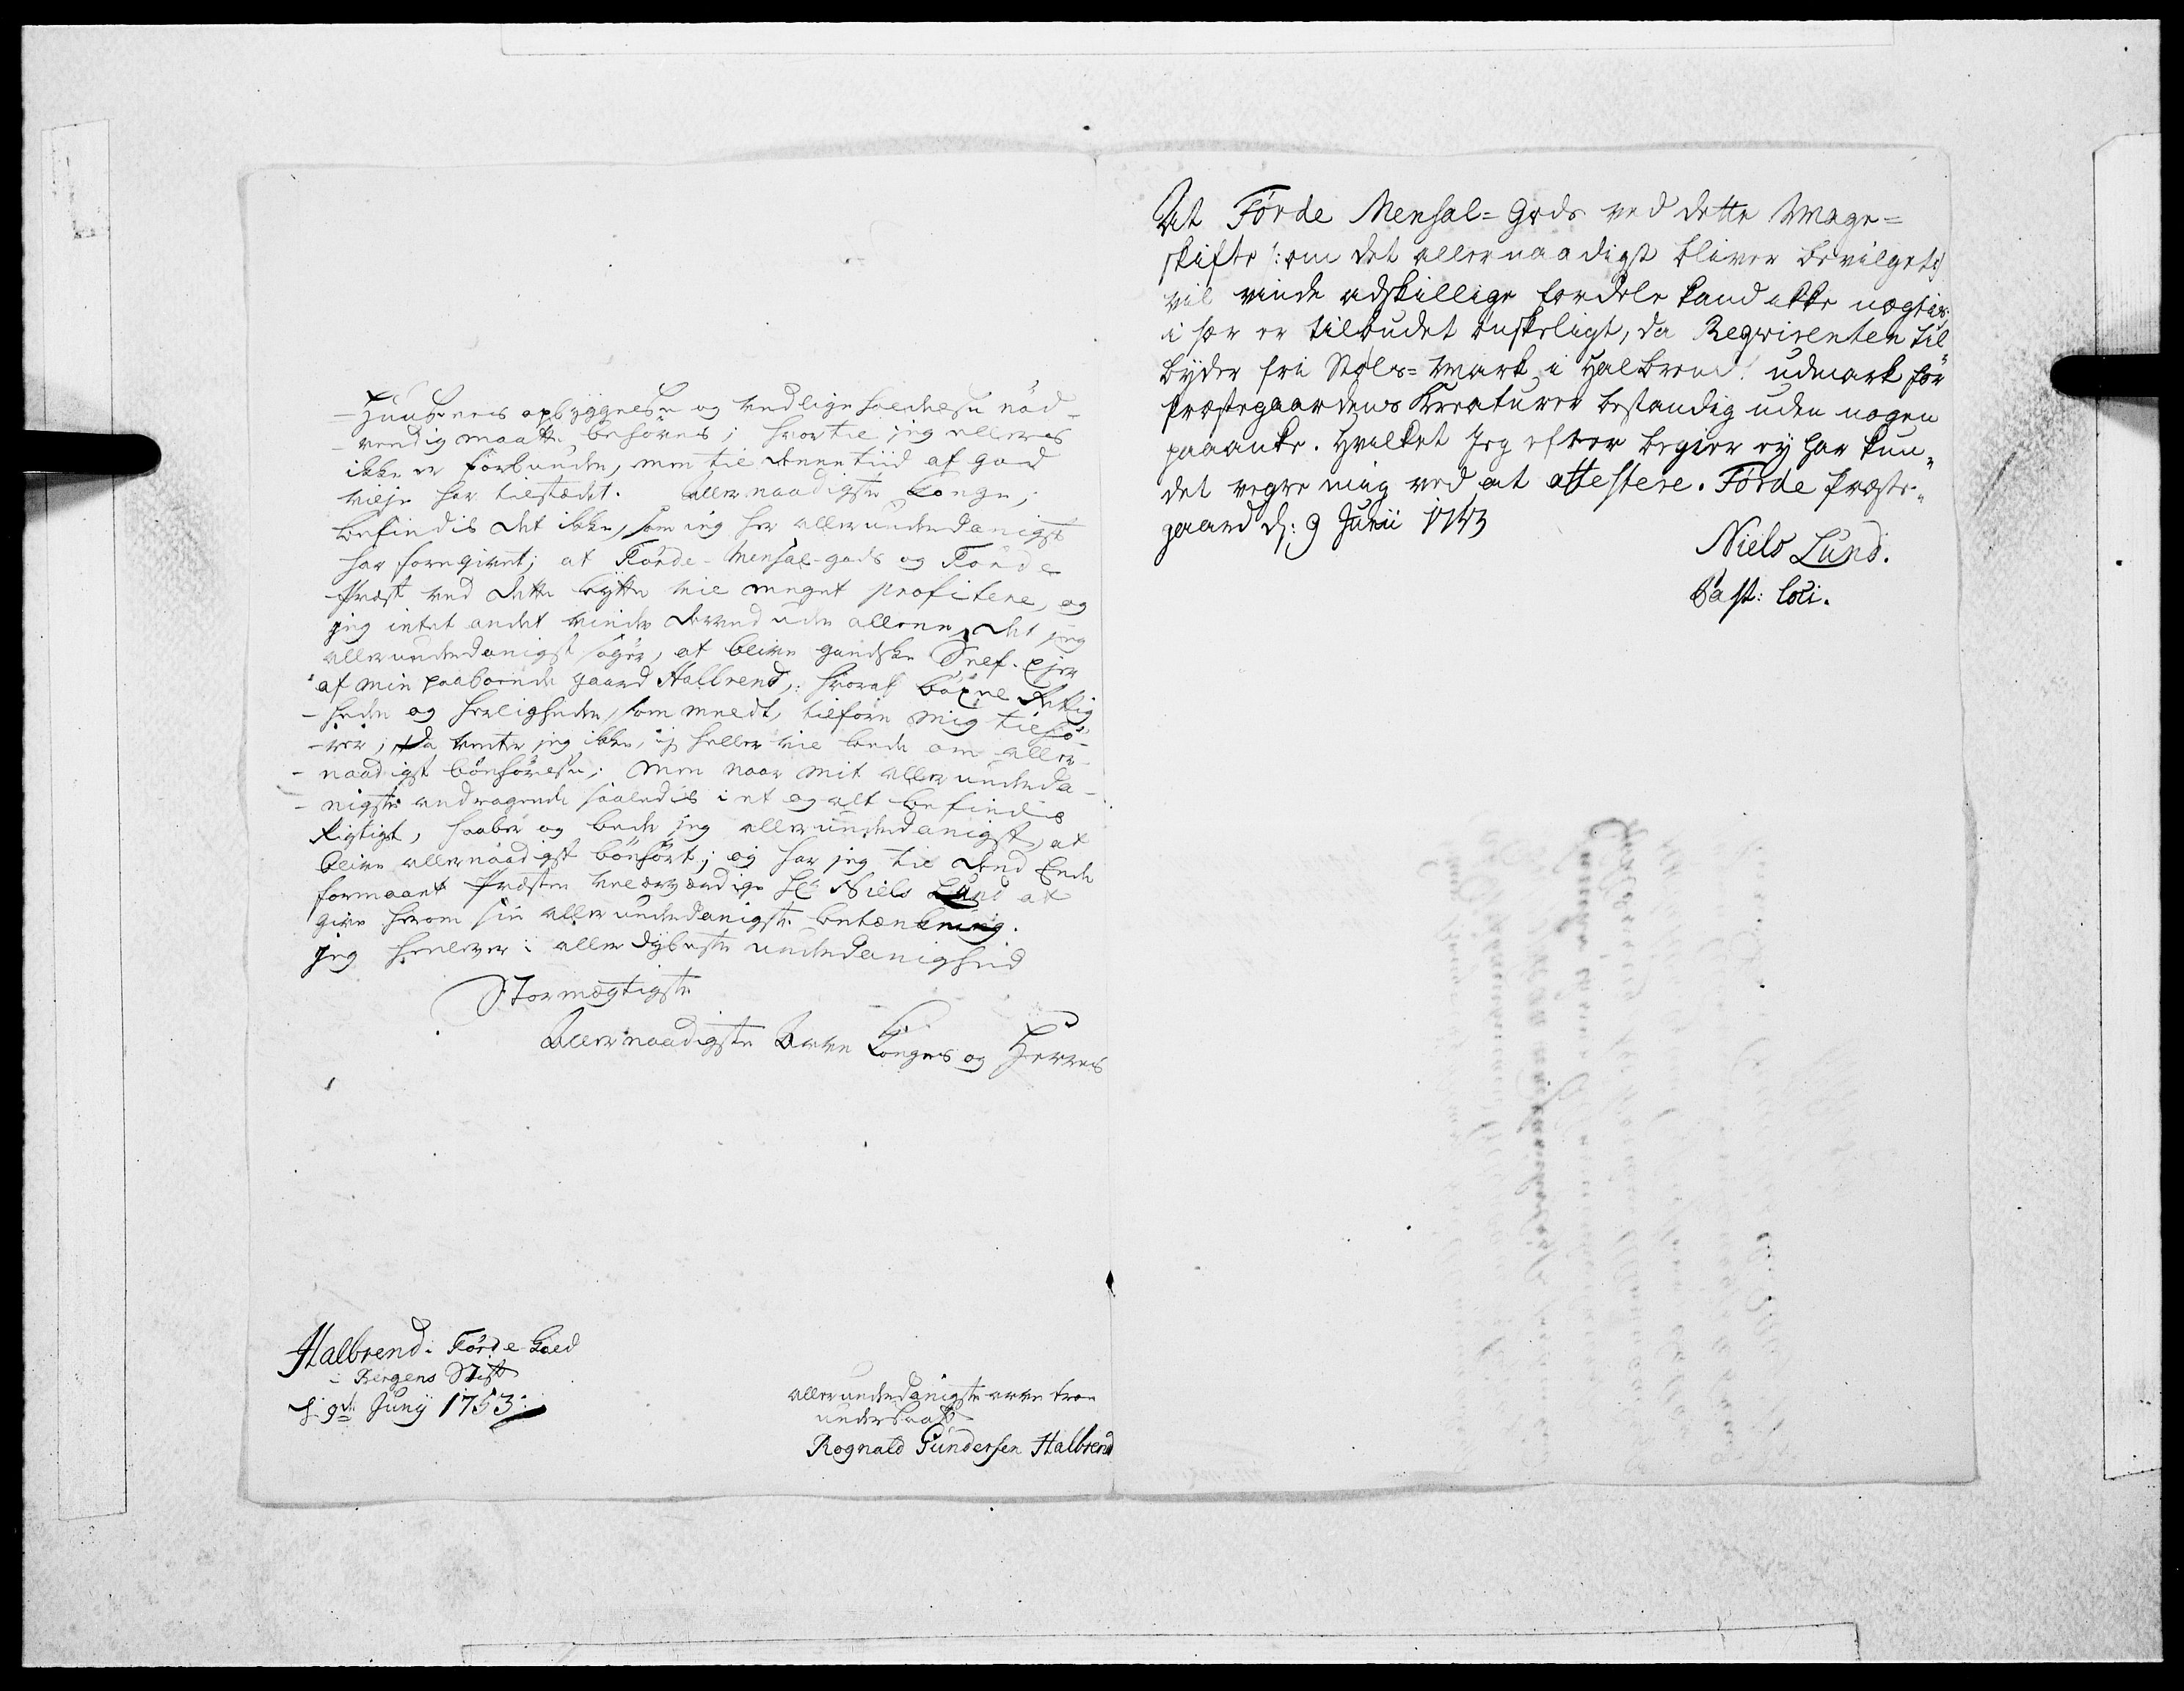 - Huusenes opbyggelse og vedligeholdelse nød-
- vendig maatte behøves; hvortil jeg ellers
ikke er forbunden, men til denne tiid af god
vilje har tilstædet. Allernaadigste Konge,
befindis det ikke, som jeg her allerunderdanigst
har foregivet; at Førde-Mensal-gods og Førde
Præst ved dette bytte vil meget profitere, og
jeg intet andet vinder derved uden allene, det jeg
allerunderdanigst søger, at blive gandske Self-Ejer
af min paaboende gaard Halbrend, hvoraf böxel Rettig
- heden og herligheden, som meldt, tilforn mig tilhø-
- rer; Da venter jeg ikke, ej heller vil bede om aller-
- naadigst bönhørelse; Men naar mit allerunderda-
- nigste andragende saaledis i et og alt befindis
Rigtigt, haaber og beder jeg allerunderdanigst, at
blive allernaadigst bönhørt; og har jeg til dend Ende
formaaet Præsten velærværdige Hr. Niels Lund at
give herom sin allerunderdanigste betænkning.
jeg henlever i aller dybeste underdanighed
Stormægtigste
Allernaadigste Arve Konges og Herres
Halbrend i Førde
i Bergens Stift
d: 9de Junij 1753:
allerunderdanigste arve troe
undersaatt
Rognald Gundersen Halbrend
At Förde Mensal=Gods ved dette Mage=
skifte /: om det allernaadigst bliver bevilget :/
vil vinde adskillige fordele kand ikke nægtes;
i sær er tilbudet ønskeligt, da Reqvirenten til
byder fri Støls=Mark i Halbrend udmark for
Præstegaardens Kreaturer bestandig uden nogen
paaanke. Hvilket Jeg efter begier ey har kun„
det vegre mig ved at attestere. Förde Præste„
gaard d: 9 Junii 1753
Niels Lund.
Past: loci.